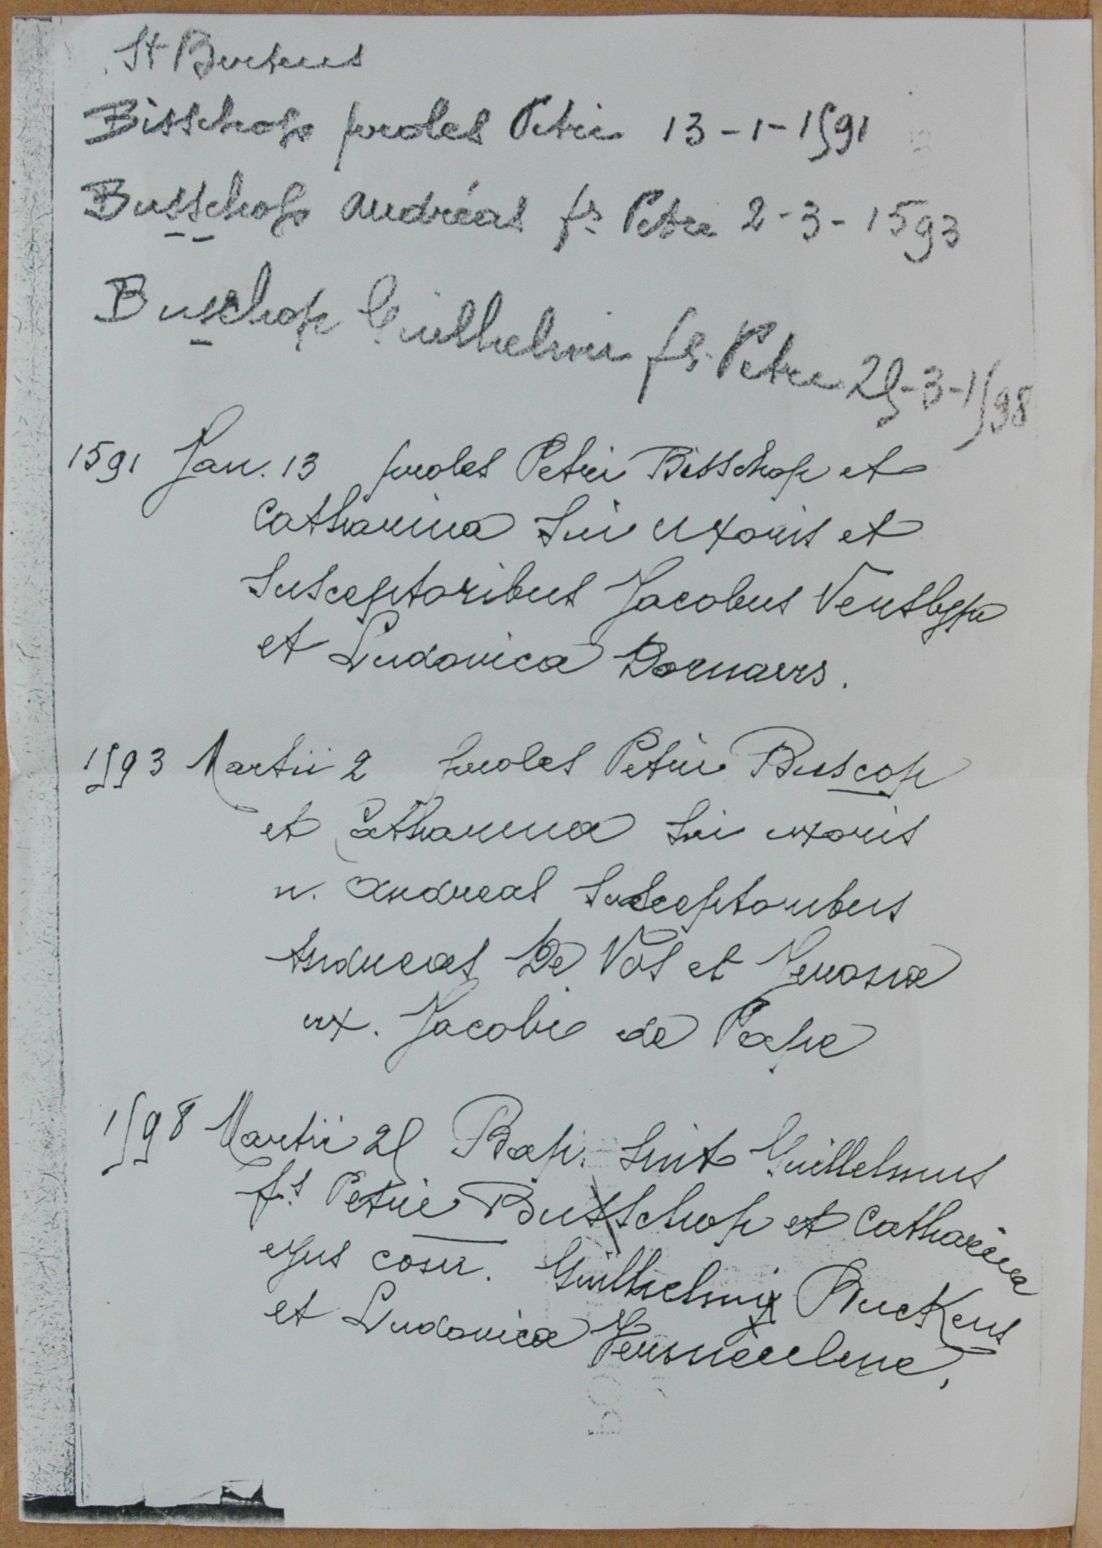 St Bertens
Bisschop proles Petri 13-1-1591
Busschop Andréas fs Petri 2-3-1593
Busschop Guilhelmi fs Petri 25-3-1598
1591 Jan. 13 proles Petri Bisschop et
Catharina sui uxoris et
susceptoribus Jacobus
et Ludovica Dornaers.
1593 Martii 2 proles Petri Buscop
et Catharina sui uxoris
n. Andreas susceptoribus
Andreas De Vos et
ux. Jacobi de Pape
1598 Martii 25 Bap. sint Guillelmus
fs Petri Busschop et Catharina
ejus coniu. Guilhelmi
et Ludovica